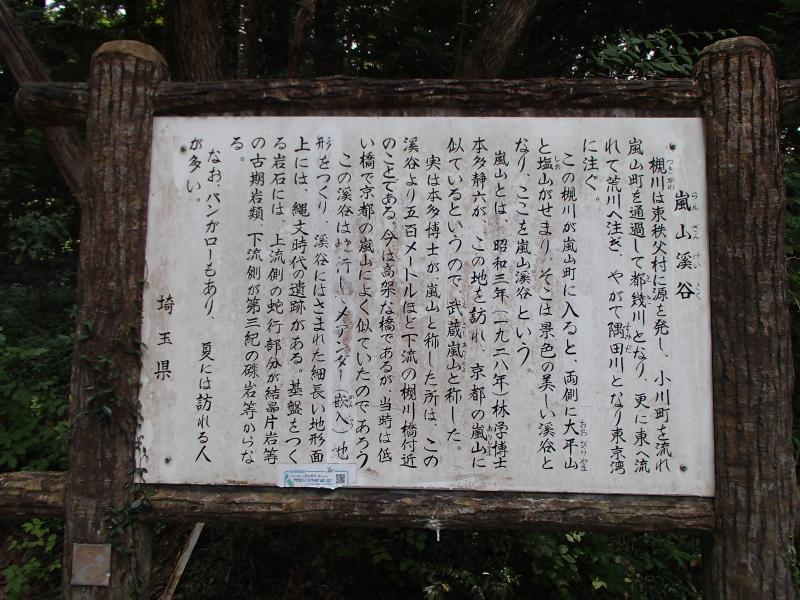 嵐山溪谷
らん ざん けい こく
槻川は東秩父村に源を発し、小川町を流れ
つきがわ
嵐山町を通過して都幾川となり、更に東へ流
れて荒川へ注ぎ、やがて隅田川となり東京湾
すみだ
に注ぐ。
この槻川が嵐山町に入ると、両側に大平山
おおびらやま
と塩山がせまり、そこは景色の美しい溪谷と
しお
なり、ここを嵐山溪谷という。
嵐山とは、昭和三年(一九二八年)林学博士
本多静六が、この地を訪れ、京都の嵐山に
あらしやま
似ているというので、武蔵嵐山と称した。
実は本多博士が嵐山と称した所は、この
溪谷より五百メートルほど下流の槻川橋付近
のことである。今は高架な橋であるが、当時は低
い橋で京都の嵐山によく似ていたのであろう
この溪谷は蛇行し、メアンダー(嵌入)地
形をつくり、溪谷にはさまれた細長い地形面
上には、縄文時代の遺跡がある。基盤をつく
る岩石には、上流側の蛇行部分が結晶片岩等
の古期岩類、下流側が第三紀の礫岩等からな
る。
なお、バンガローもあり、夏には訪れる人
が多い。
埼玉県